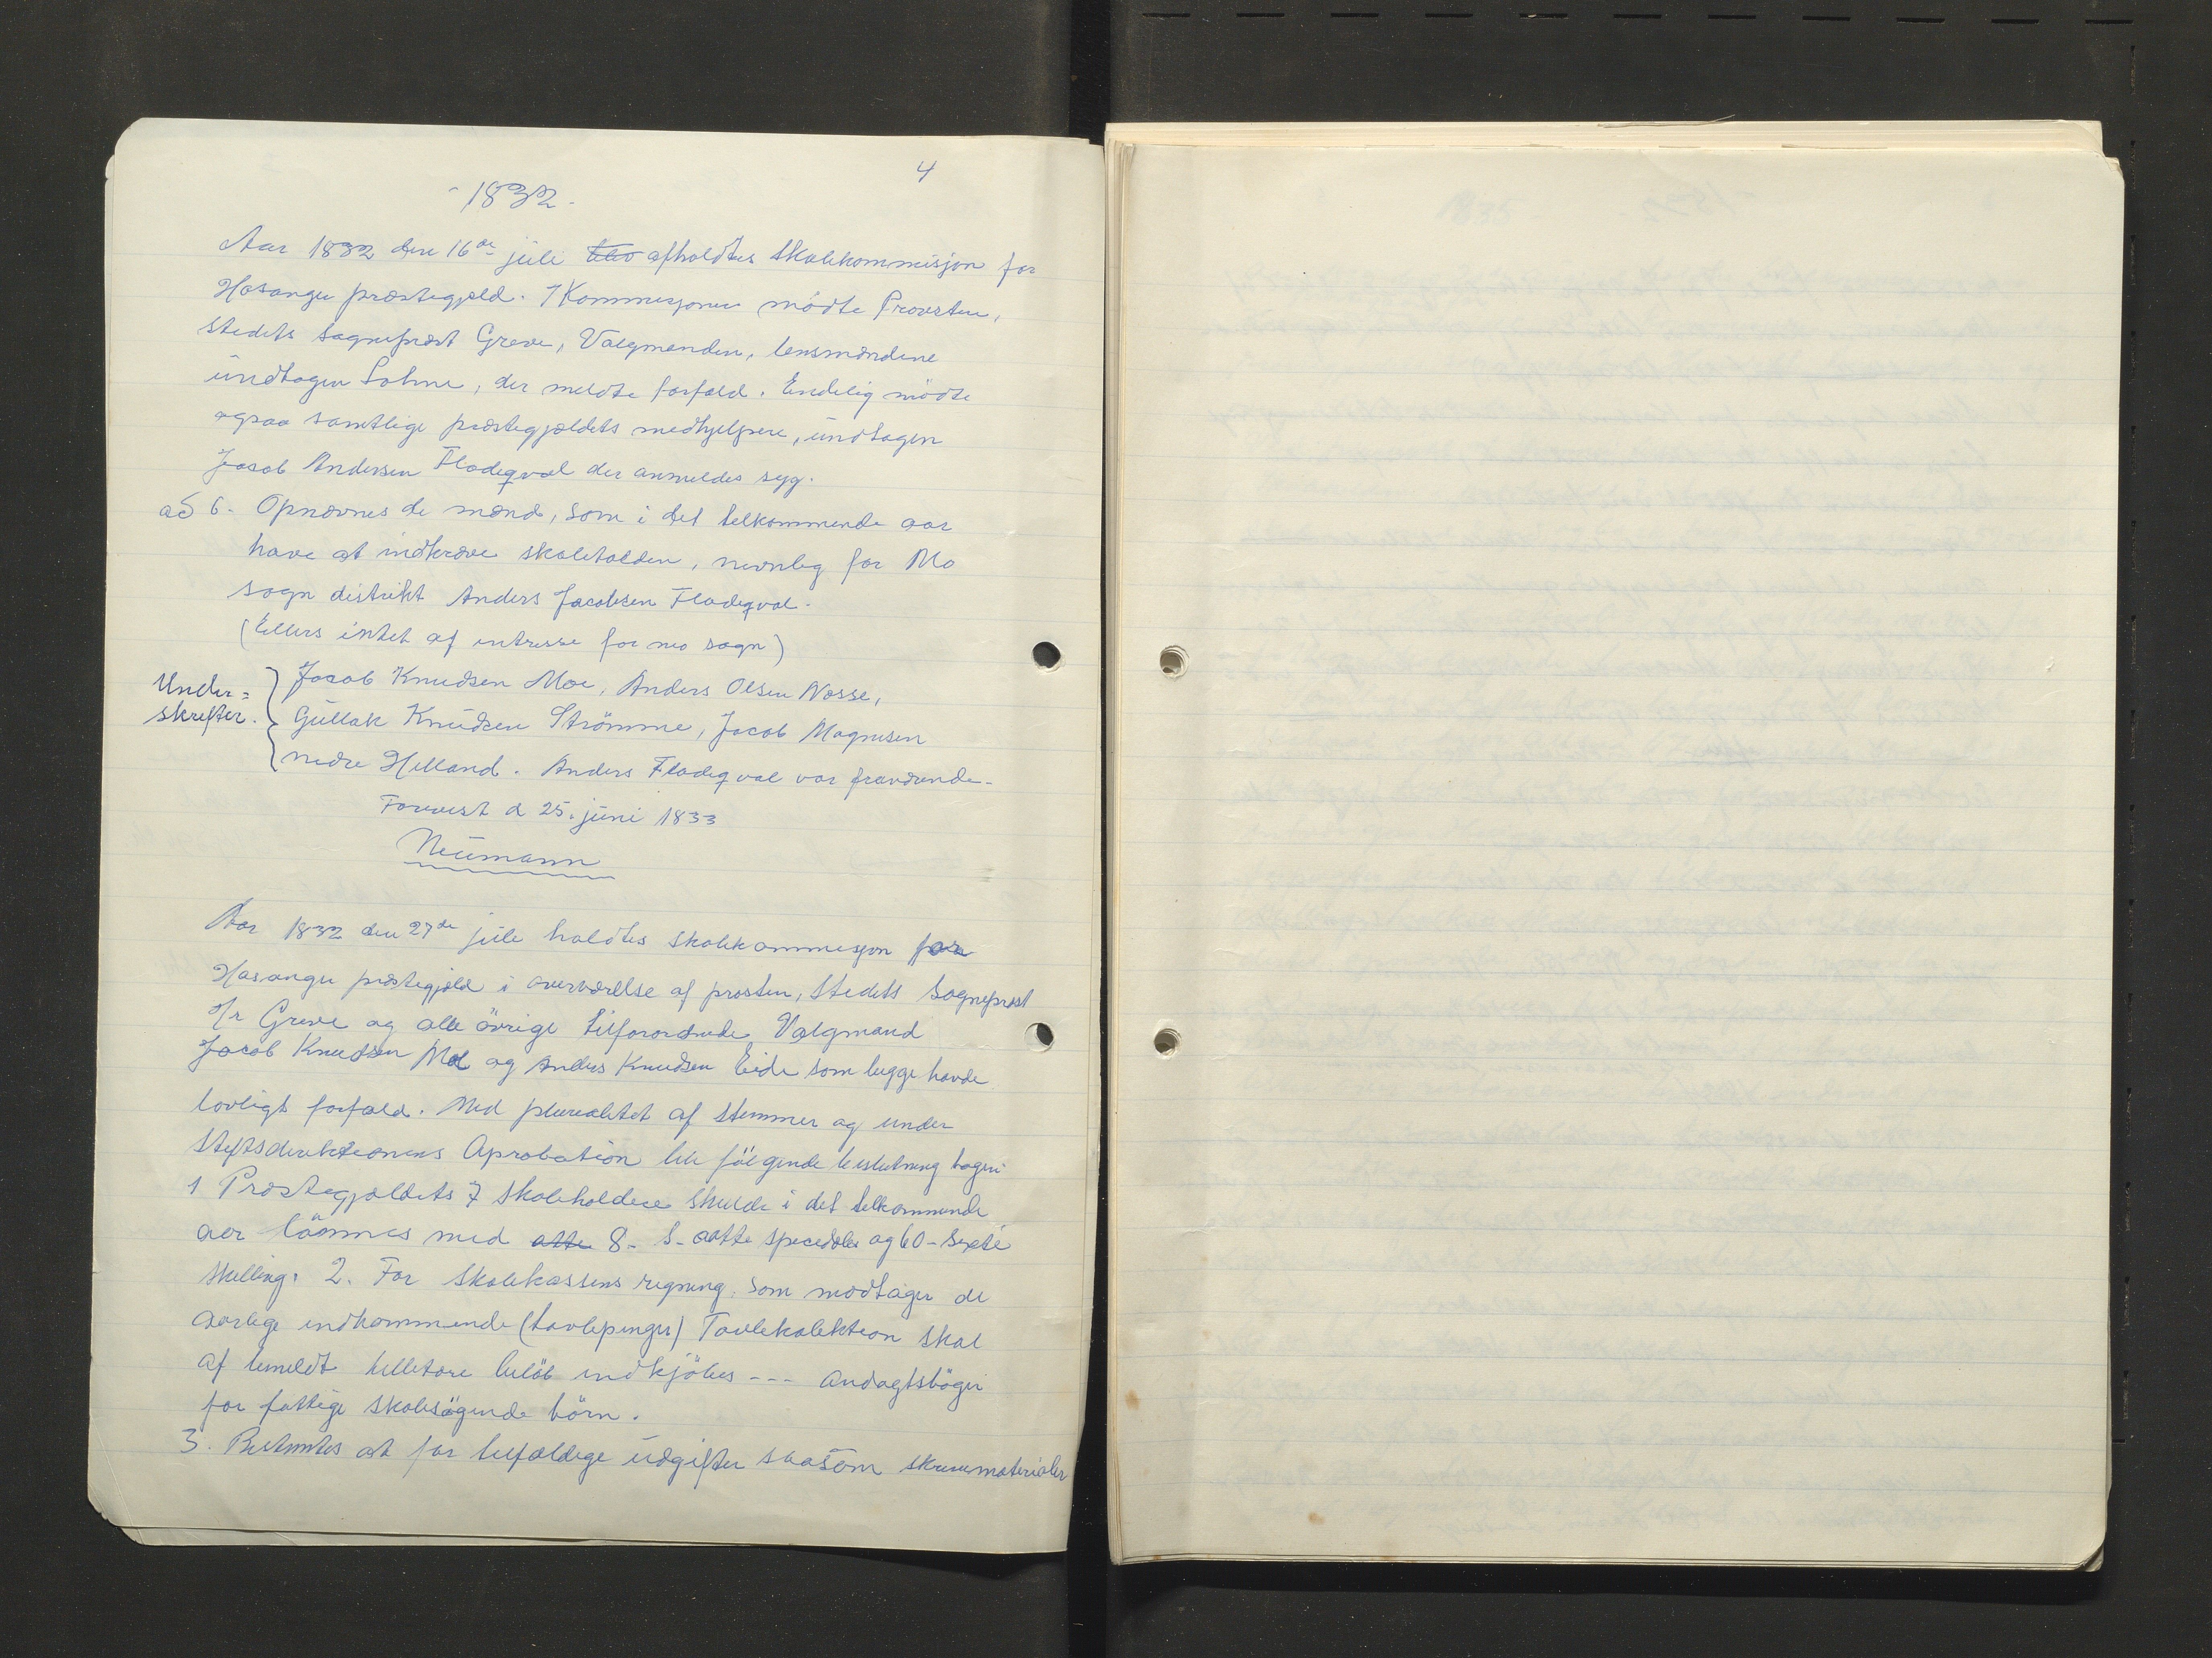 4
- 1832 -
Aar 1832 den 16de juli blev afholdtes skolekommisjon for
Hosanger præstegjæld. I Kommisjonen mödte Provsten,
stedets sogneprest Greve, Valgmanden, lensmændene
undtagen Sohne, der meldte forfald. Endelig mödte
ogsaa samtlige præstegjældets medhjelpere, undtagen
Jacob Andersen Fladeqval der anmeldes syg.
ad 6. Opnævnes de mænd, som i det tilkommende aar
have at indkræve skoletolden, nevnlig for Mo
sogn distrikt Anders Jacobsen Fladeqval.
(Ellers intet af intresse for mo sogn)
Under=
skrifter.
Jacob Knudsen Moe, Anders Olsen Nesse,
Gullak Knudsen Strömme, Jacob Magnesen
nedre Helland. Anders Fladeqval var fraværende.
Forevist d 25. juni 1833
Neumann
Aar 1832 den 27de juli holdtes skolekommisjon for
Hosanger præstegjæld i overværelse af prosten, stedets Sogneprest
Hr Greve og alle övrige tilforordnede Valgmænd
Jacob Knudsen Mo og Anders Knudsen Eide som begge havde
lovligt forfald. Med pluralitet af stemmer og under
Stiftsdirektionens Aprobation ble fölgende beslutning tagen
1 Præstegjældets 7 skoleholdere skulde i det tilkommende
aar lönnes med otte 8 - S - aatte speciedaler og 60 - sexti
skilling. 2. For skolekassens regning. som modtager de
aarlige indkommende (tavlepenger) Tavlekolektion skal
af bemeldt belöb indkjöbes --- andagtsböger
for fattige skolesögende börn.
3. Bestemtes at for tilfældige udgifter saasom skrivematerialer